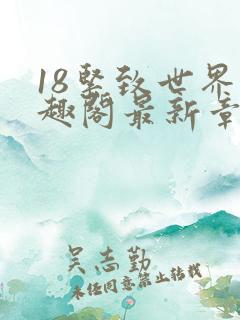 18坚致世界
趣阁最新章
吴志勤
未经同意禁止转载